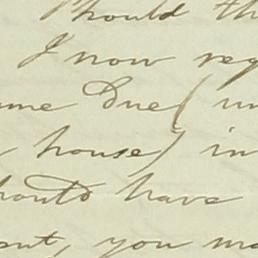 should th
I now reg
ame Due (un
house) in
should have
ent, you ma